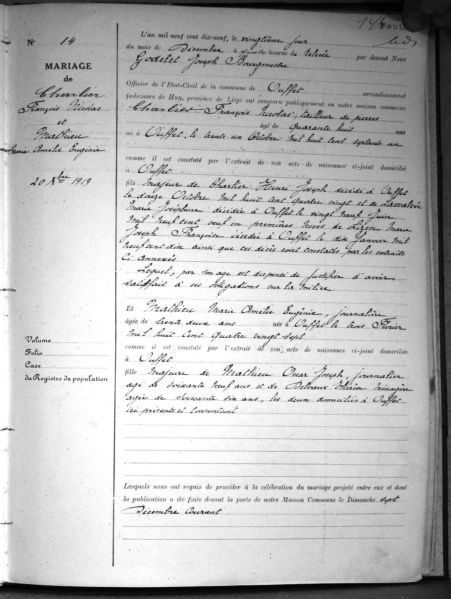 N° 14
MARIAGE
de
Charlier
François Nicolas
et
Mathieu
Marie Amélie Eugénie
20 Xbre 1919
Volume
Folio
Case
du Registre de population
L'an mil neuf cent dix-neuf, le vingtième jour
du mois de Décembre à heures de relevée par devant Nous
Godelet Joseph Bourgmestre
Officier de l'Etat-Civil de la commune de Ouffet arrondissement
judiciaire de Huy, province de Liége ont comparu publiquement en notre maison commune
Charlier François Nicolas, tailleur de pierres
âgé de quarante huit ans
né à Ouffet, le trente un Octobre mil huit cent septante un
comme il est constaté par l'extrait de son acte de naissance ci-joint domicilié
à Ouffet
fils majeur de Charlier Henri Joseph décédé à Ouffet
le douze Octobre mil huit cent quatre vingt et de
Marie Joséphine décédée à Ouffet le vingt neuf Juin
mil neuf cent neuf en premières noces de Marie
Joseph Françoise décédée à Ouffet le dix Janvier mil
neuf cent dix ainsi que ces décès sont constatés par les extraits
ci annexés
Lequel, par son âge est dispensé de justifier d'avoir
satisfait à ses obligations sur la milice
Et Mathieu Marie Amélie Eugénie, journalière
âgée de trente deux ans née à Ouffet le trois Février
mil huit cent quatre vingt sept
comme il est constaté par l'extrait de son acte de naissance ci-joint domiciliée
à Ouffet
fille majeure de Mathieu Omar Joseph, journalier
âgé de soixante neuf ans et de ménagère
âgée de soixante six ans, les deux domiciliés à Ouffet
ici présents et consentant
Lesquels nous ont requis de procéder à la célébration du mariage projeté entre eux et dont
la publication a été faite devant la porte de notre Maison Commune le Dimanche sept
Décembre courant